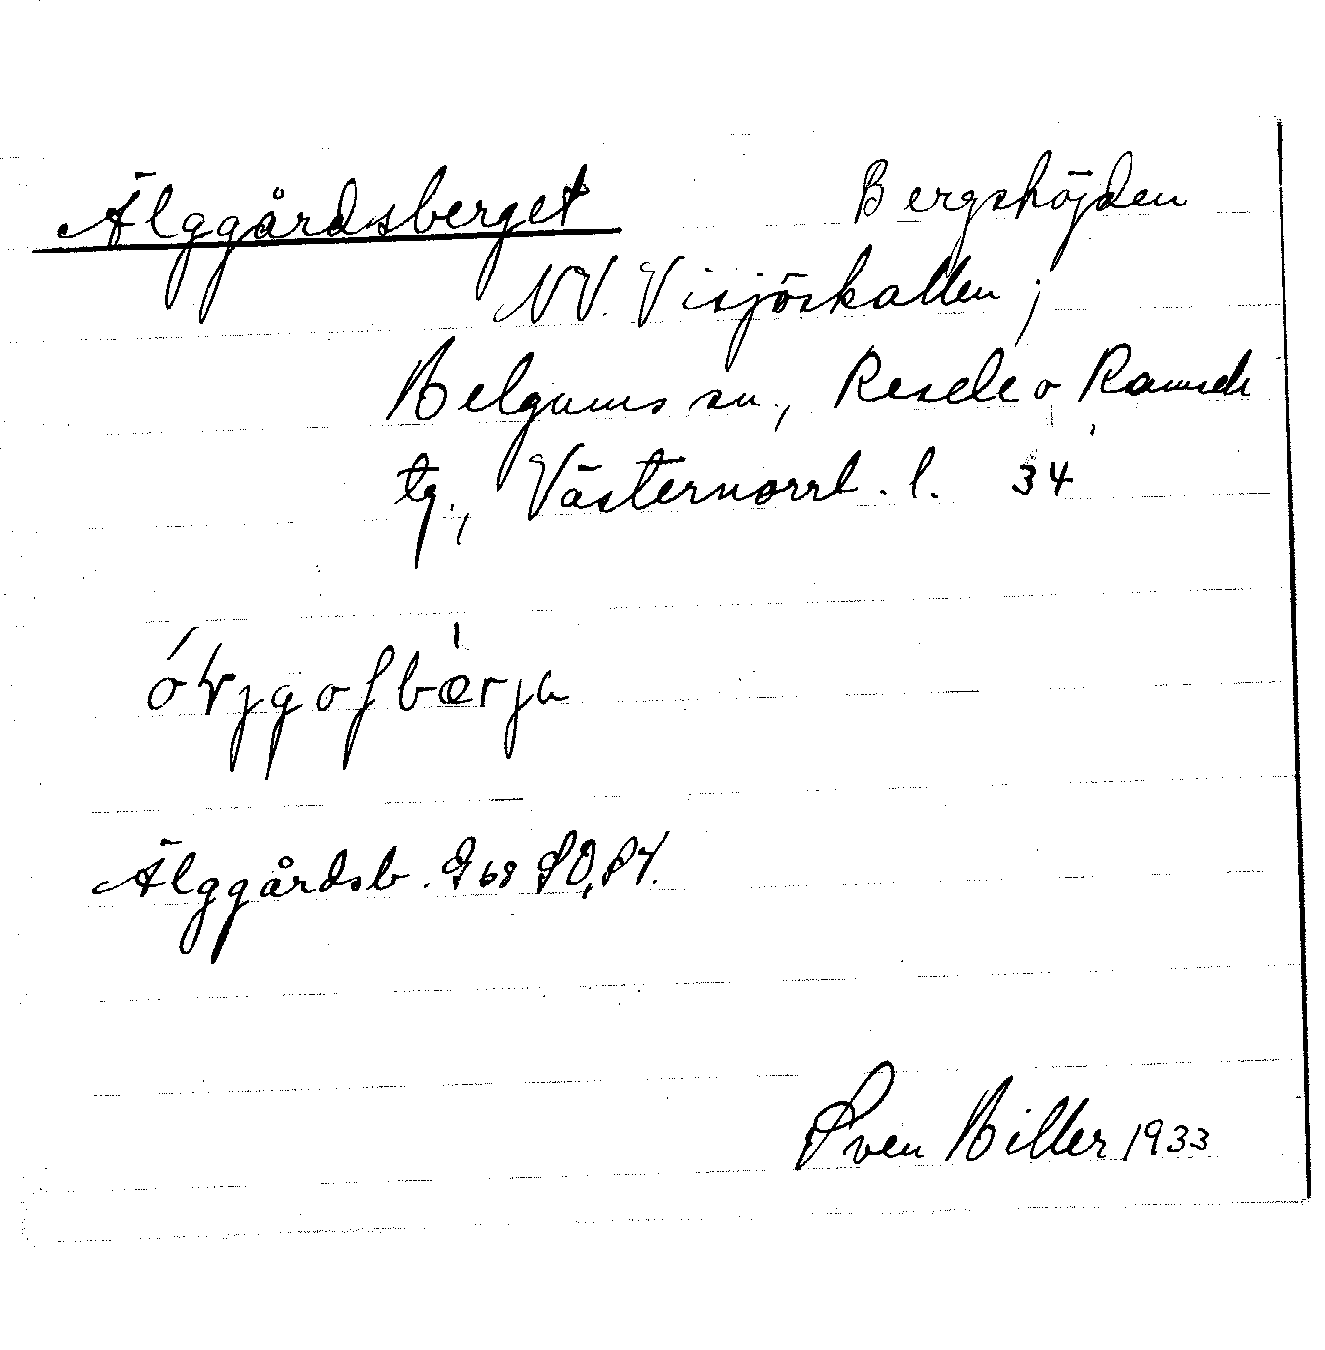 Älggårdsberget Bergshöjden
NV. Visjöskallen;
Helgums sn., Resele o Ramsele
tg., Västernorrl. l. 34
Älggårdsb. G 68 SO, SV.
Sven Hiller 1933